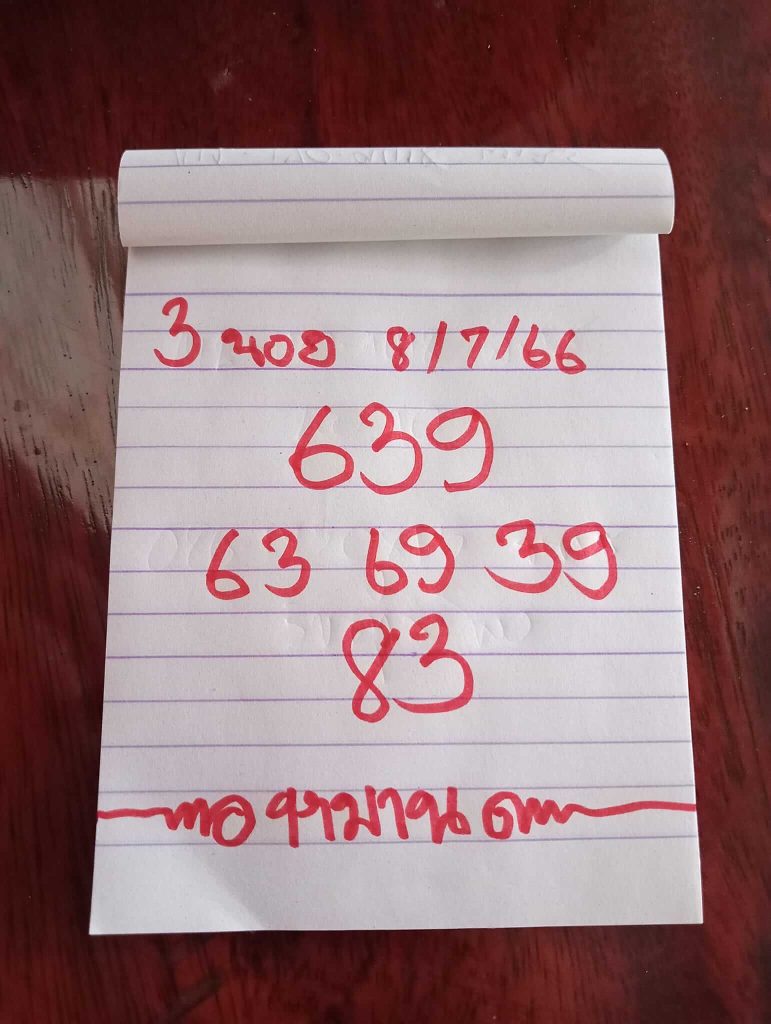 3 นอย 8/7/66
639
63 69 39
83
จ่ามาน